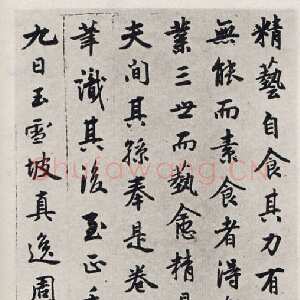 精藝自食其力有
無能而素食者得
業三世而藝愈精是
夫間其孫奉是卷
筆識其後至正
九日玉雪坡真逸周
shufawang.cn